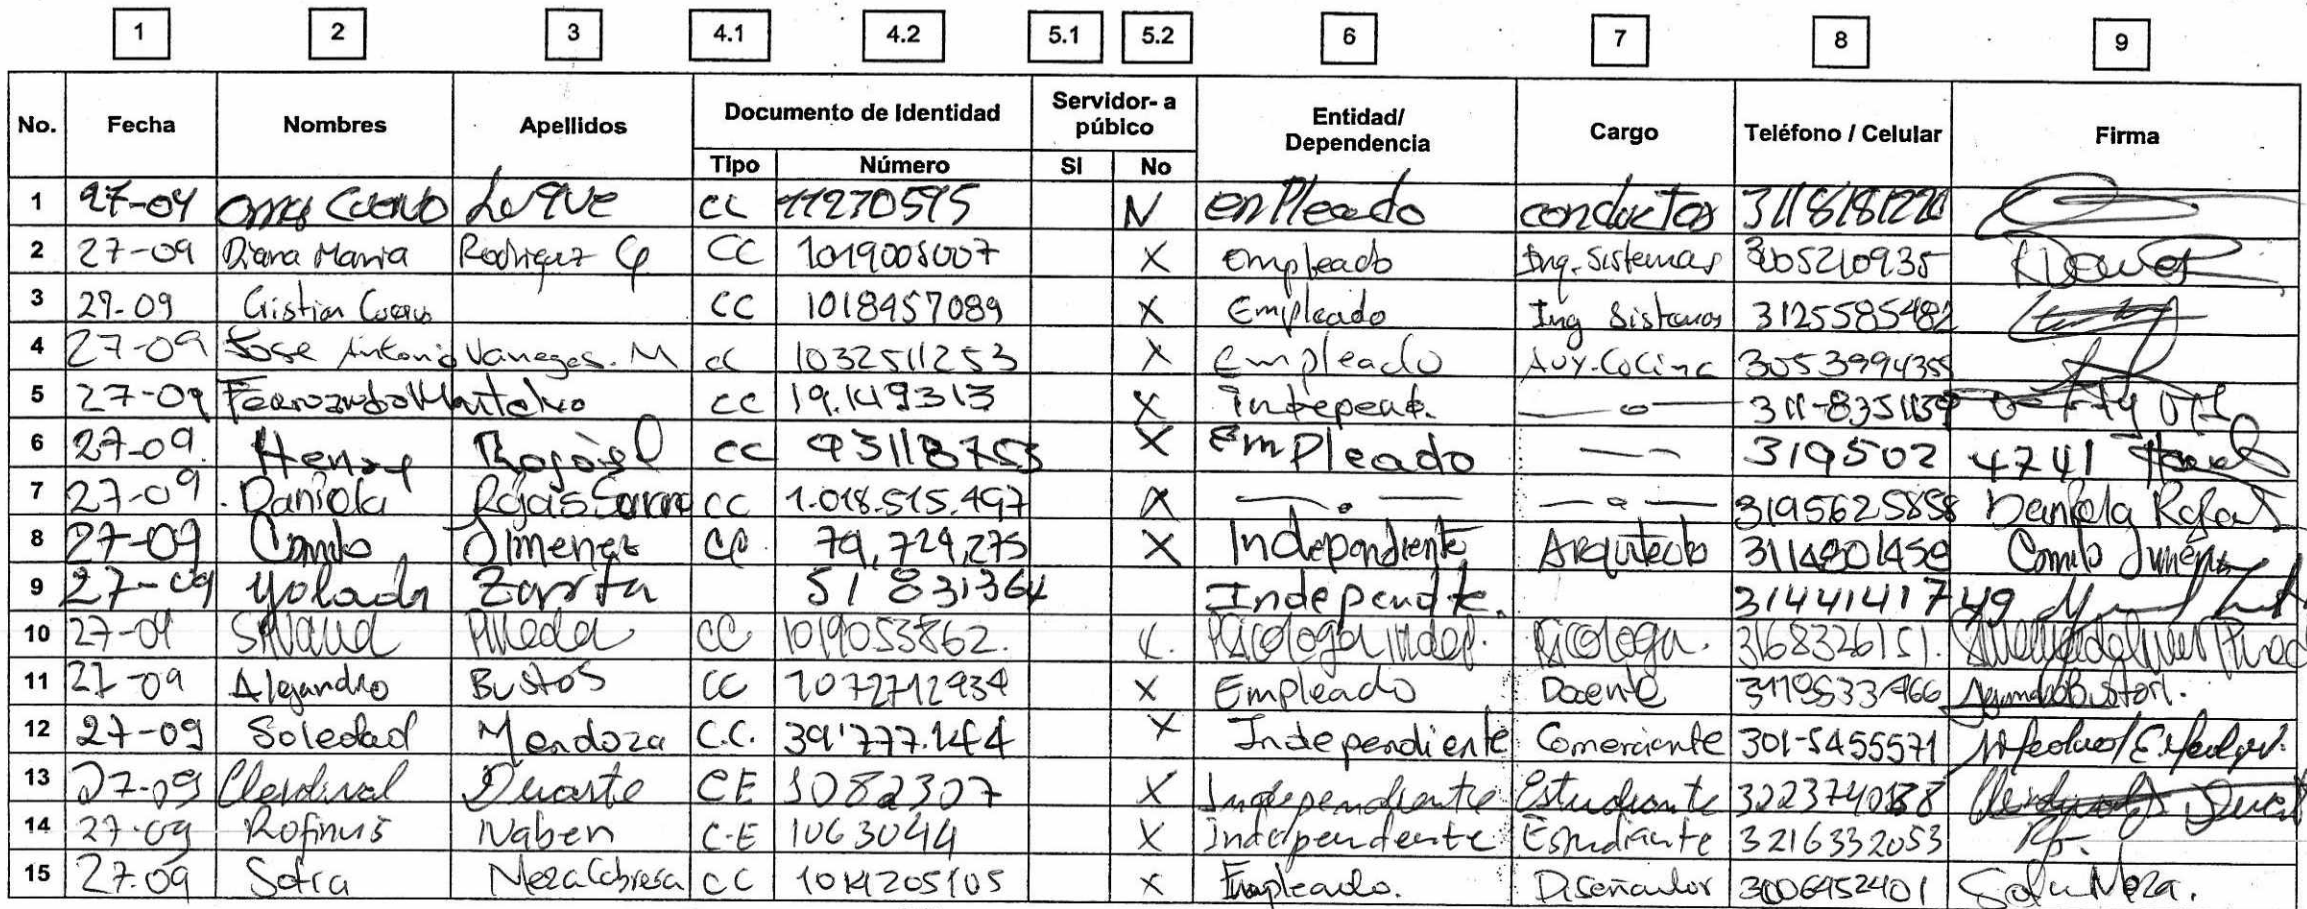 1 2 3 4.1 4.2 5.1 5.2 6 7 8 9
No. Fecha Nombres Apellidos Documento de Identidad Servidor- a púbico Entidad/ Dependencia Cargo Teléfono / Celular Firma
Tipo Número SI No
1 27-09 Cuervo Luque CC 11270595 N enPleado conductor
2 27-09 Diana Maria Rodriguez CC 1019005007 X empleado Ing. Sistemas 3005210935
3 27-09 Cristian Cuervo CC 1018457089 X Empleado Ing Sistemas 3125585482
4 27-09 Jose Antonio Vanegas. M CC 1032511253 X Empleado Aux. Cocina 3053994355
5 27-09 CC 19.149313 X Indepent. — o — 311-8351139
6 27-09. Henry CC 93118753 X EmPleado — - 319502 4741
7 27-09 Daniela Rojas CC 1.018.515.497 X — . — — o — 3195625858 Daniela Rojas
8 27-09 Camilo Jimenez CC 79,729,275 X Independiente Arquitecto 3114801450 Camilo Jiménez
9 27-09 Zarta 51 831364 Independte. 3144141749
10 27-09 Silvana Pineda CC 1019053862. X. Psicologa indep. Psicologa. 3168326151.
11 27-09 Alejandro Bustos CC 1072712934 X Empleado Docente 3118533466
12 27-09 Soledad Mendoza C.C. 39'777.144 X Independiente Comerciante 301-5455571
13 27-09 Clerdinal Duarte CE 1082307 X Independiente Estudiante 3223740138
14 27-09 Rofinus Naben C.E 1063044 X Independente Estudiante 3216332053
15 27.09 Sofia Meza Cabresa CC 1014205105 X Empleado. Diseñador 3006452401 Sofia Meza.